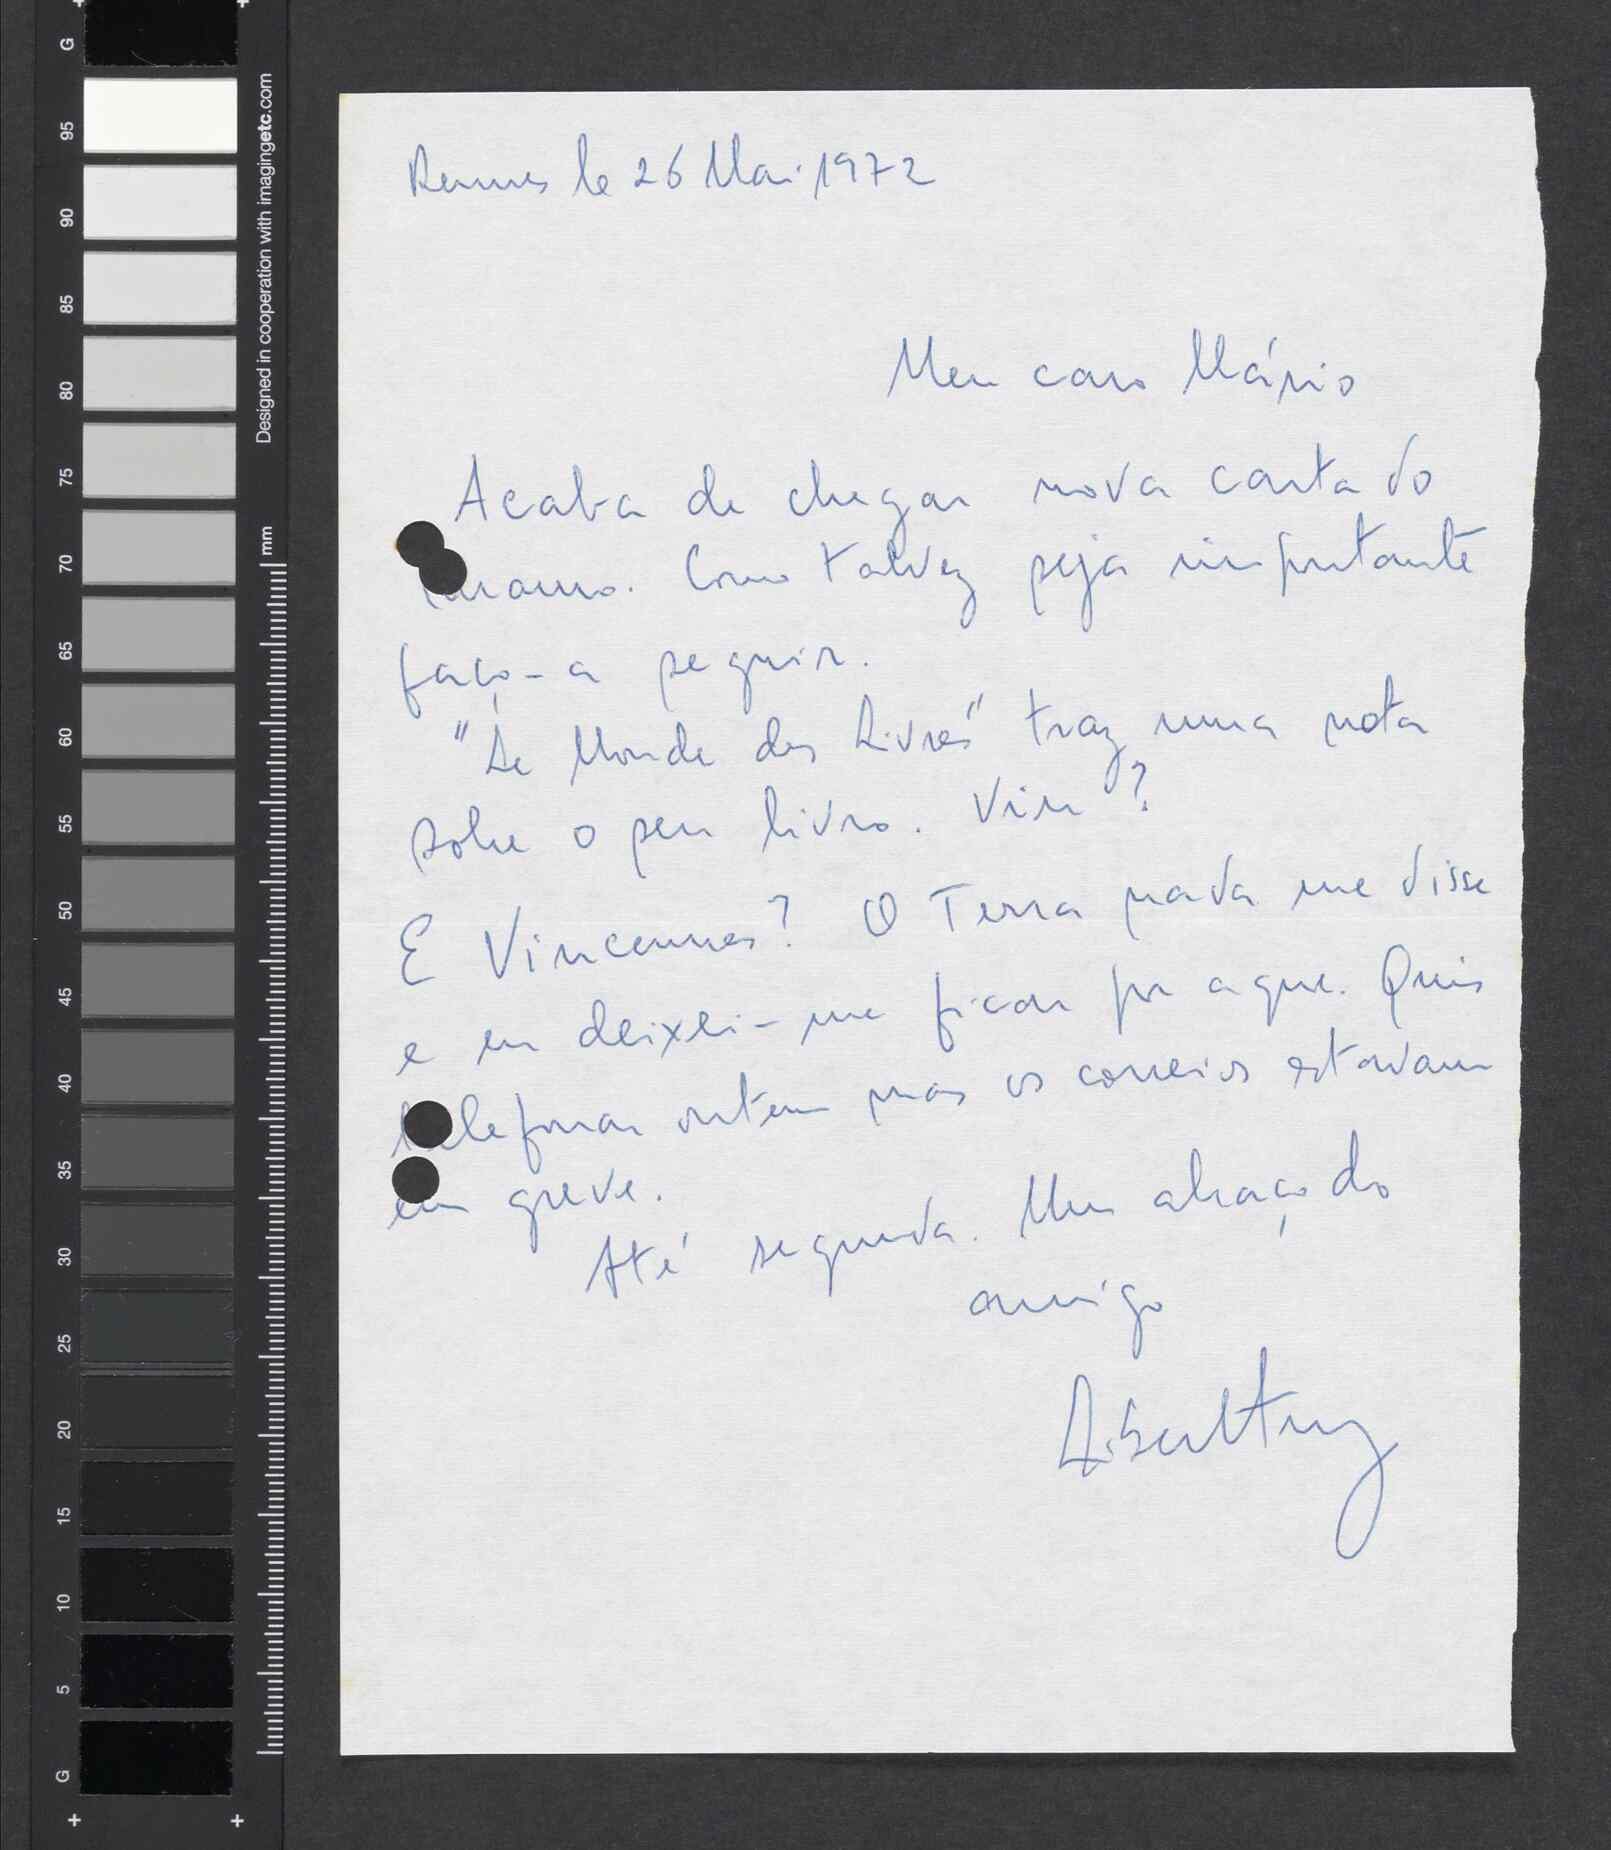 Rennes le 26 Mai 1972
Meu caro Mário
Acaba de chegar nova carta do
. Como talvez seja importante
faço-a seguir.
"Le Monde des Livres" traz uma nota
sobre o seu livro. Viu?
E Vincennes? O Terra nada me disse
e eu deixei-me ficar por aqui. Quis
telefonar ontem mas os correios estavam
em greve.
Até segunda. Um abraço do
amigo
G
95
90
85
80
75
70
65
60
55
50
45
40
35
30
25
20
15
10
5
G
mm
Designed in cooperation with imagingetc.com